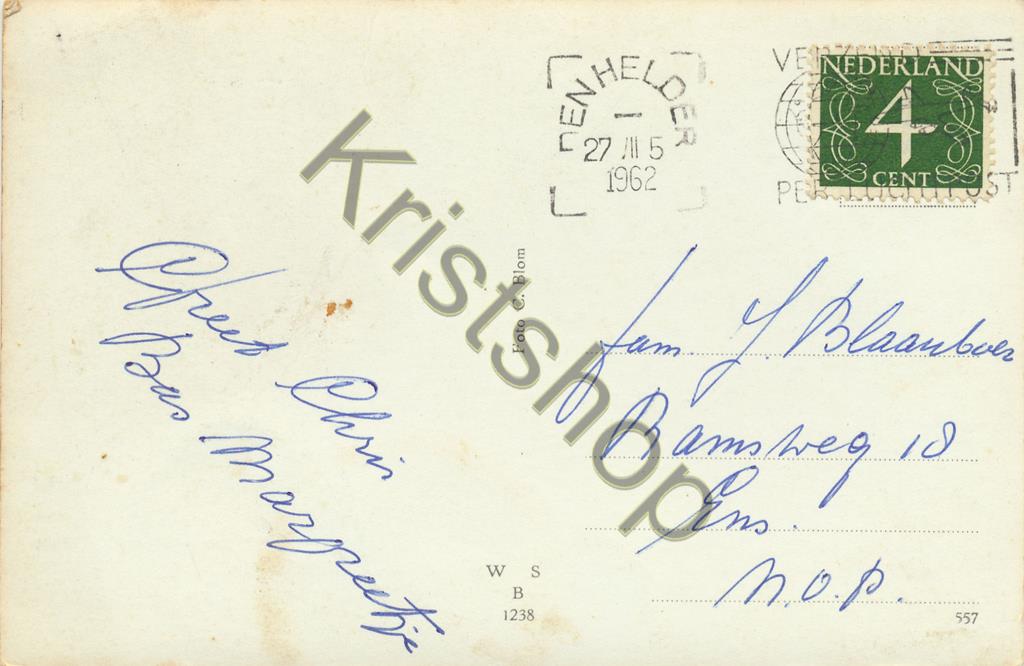 DEN HELDER
27 III 5
1962
PER LUCHTPOST
NEDERLAND
4
CENT
Kristshop
Foto C. Blom
Greet Chris
Bas Margreetje
fam. J. Blaauboer
Ramsweg 18
Ens.
N.O.P.
W S
B
1238
557